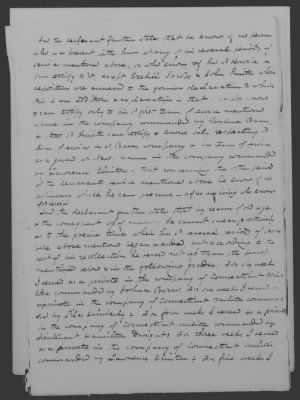 And the declarant further states that he knows of no person
who was present with him at any of his several periods of
service mentioned above, or who knows of his sd service &
can testify to it, except Ezekiel Jacobs & John Smith whose
depositions are annexed to the former declaration to which
this is an addition & explanation & that sd Jacobs knows
& can testify only to his sd first term of service mentioned
above in the company commanded by Joshua Barns
& sd Smith can testify & knows only respecting sd
term of service in sd Barns company & his term of service
as a guard at New Haven in the company commanded
by Lawrence Clinton. That concerning the other period
of the declarants service mentioned above he knows of no
person whom he can procure who
And the declarant further states that by reason of old age
& the consequent loss of memory he cannot swear positively
as to the precise times which his sd several periods of ser-
vice above mentioned began & ended but according to the
best of his recollection he served not less than the periods
mentioned below & in the following grades, For six weeks
I served as a private in the company of Connecticut mili-
tia commanded by Joshua Barns. For six weeks I served
a private in the company of Connecticut militia comman-
ded by Silas Kimberly & For four weeks I served as a private
in the company of Connecticut militia commanded by
Lieutenant Hamilton Dwights. For three weeks I served
as a private in the company of Connecticut militia
commanded by Lawrence Clinton & For five weeks I